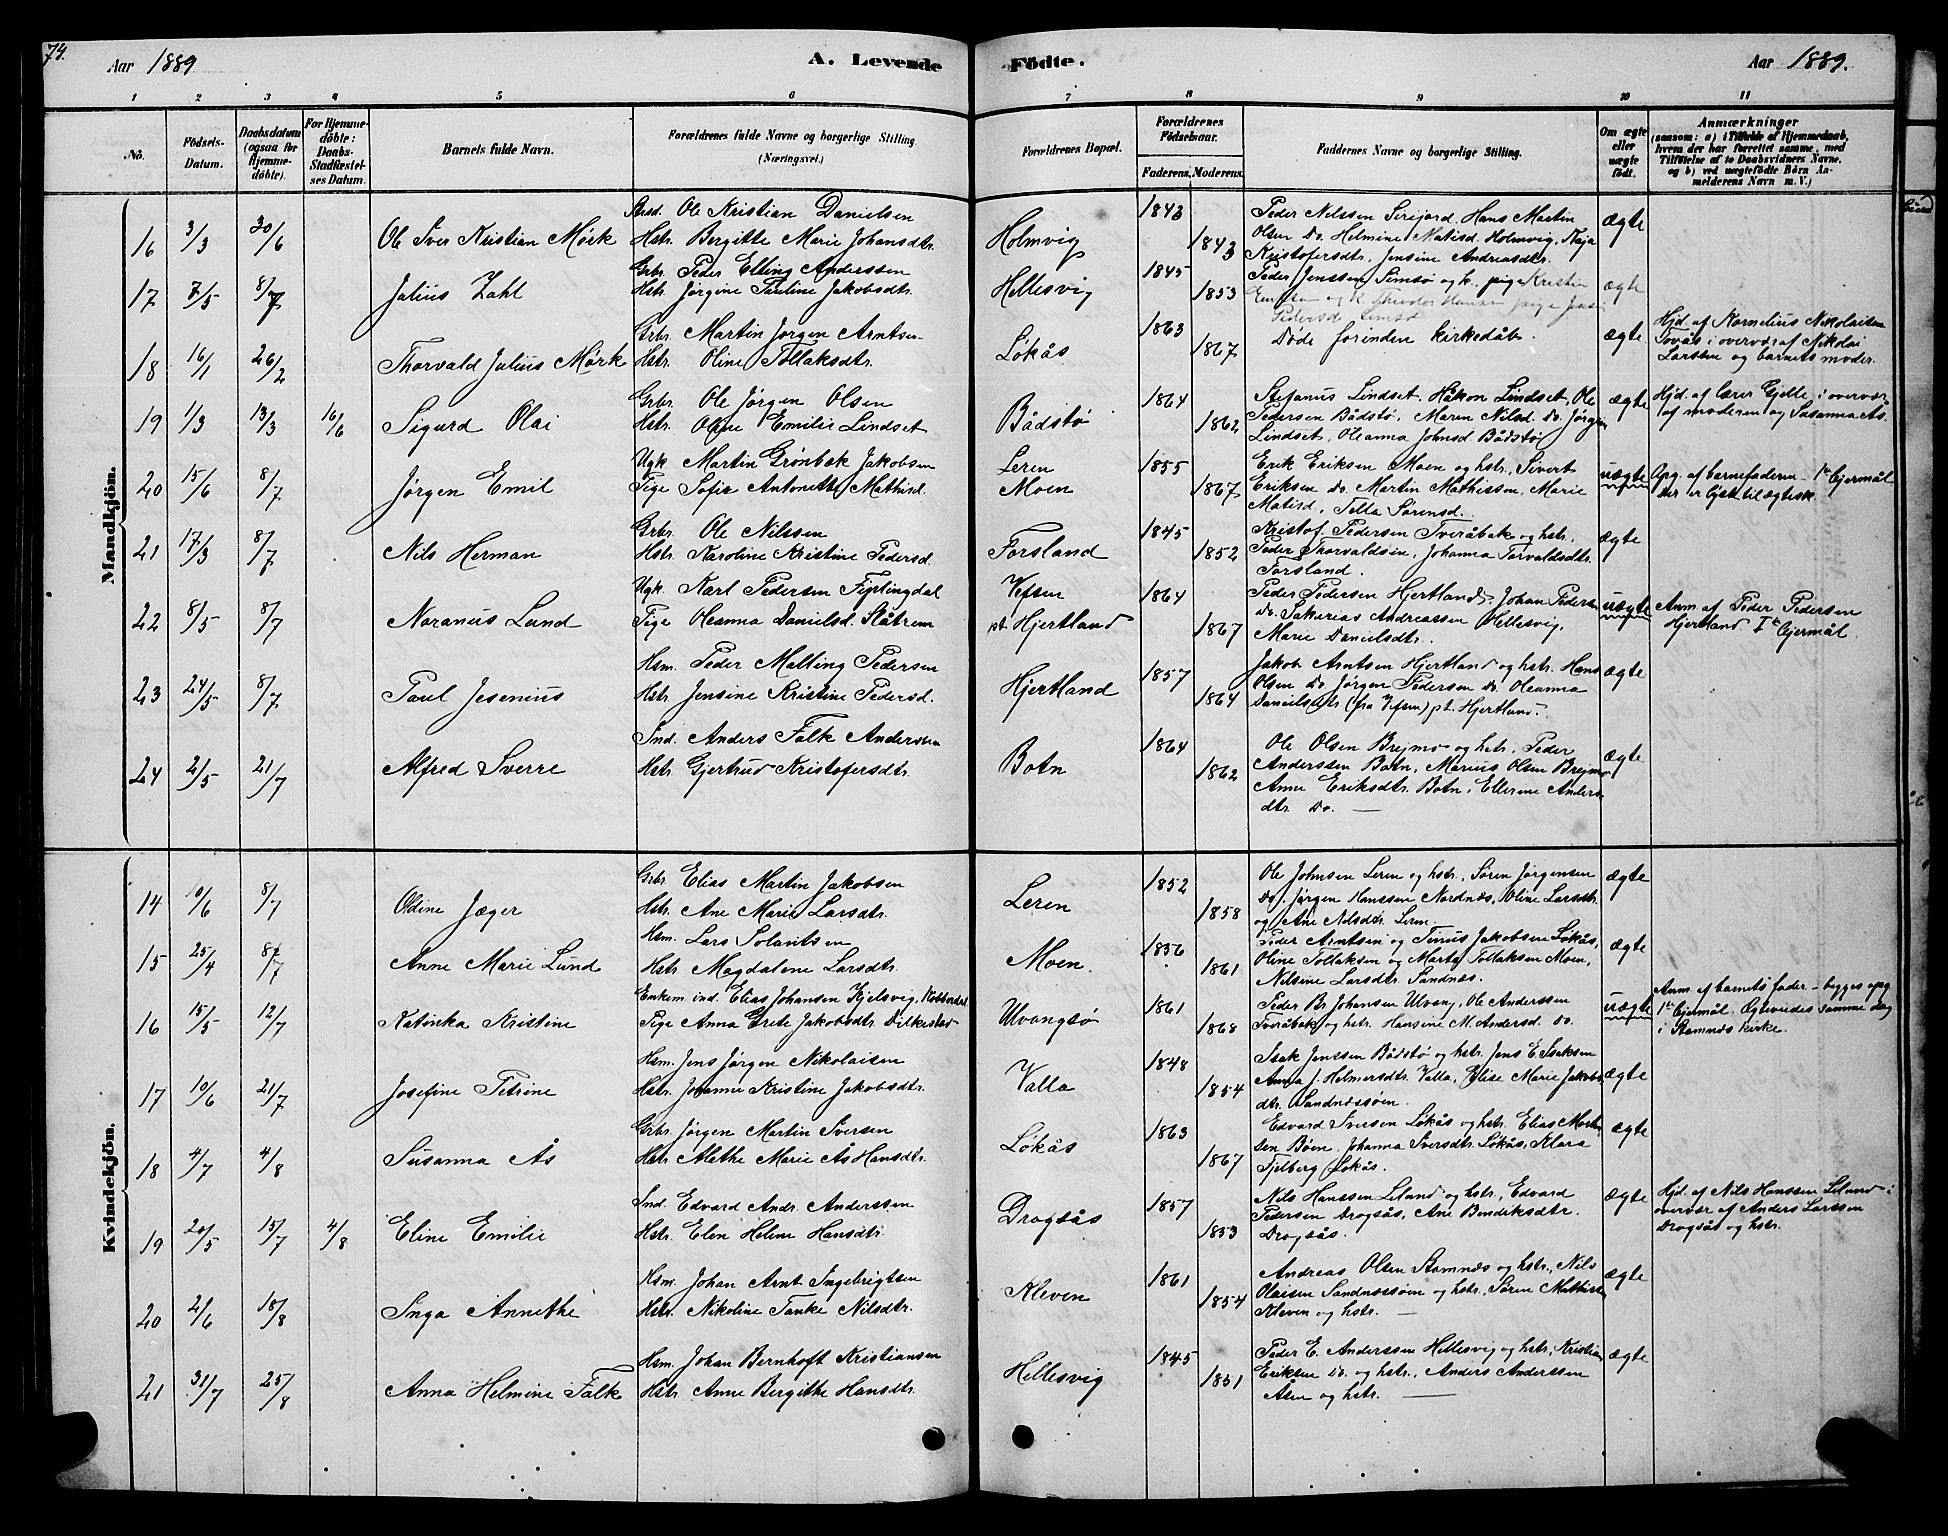 74.
Aar 1889
A. Levende
Födte.
Aar 1889.
1 2 3 4 5 6 7 8 9 10 11
No.
Födsels-Datum.
Daabsdatum (ogsaa for Hjemme-döbte).
For Hjemme-döbte: Daabs-Stadfæstel-ses Datum.
Barnets fulde Navn.
Forældrenes fulde Navne og borgerlige Stilling
(Næringsvei.)
Forældrenes Bopæl.
Forældrenes Födselsaar.
Faderens. Moderens.
Faddernes Navne og borgerlige Stilling.
Om ægte eller uægte födt.
Anmærkninger
(saasom: a) i Tilfælde af Hjemmedaab,
hvem der har forrettet samme, med
Tilföielse af to Daabsvidners Navne,
og b) ved uægtefödte Börn An-
melderens Navn m. V.)
Mandkjön.
16 3/3 30/6 Ole Sver Kristian Mørk
Ole Kristian Danielsen
Hstr. Bergitte Marie Johansdtr.
Holmvig 1843 1843
Peder Nilssen Serijord, Hans Martin
Olsen Do. Helmine Matisd. Holmvig, Kaja
Kristofersdtr, Jensine Andreasdtr.
ægte
17 7/5 8/7 Julius Zahl
Grbr. Peder Elling Anderssen
Hstr. Jørgine Pauline Jakobsdtr.
Hellesvig 1845 1853
Peder Jenssen Simsø og k. pige Kristin
ægte
18 16/1 26/2 Thorvald Julius Mørk
Grbr. Martin Jørgen Arntsen
Hstr. Oline Tollaksdtr.
Løkås 1863 1867
Døde forinden kirkedåb.
ægte
Hjd. af Kornelius Nikolaisen
Tovås i overvær af Nikolai
Larssen og barnets moder.
19 1/3 13/3 16/6 Sigurd Olai
Grbr. Ole Jørgen Olsen
Hstr. Oline Emilie Lindset
Bådstø 1864 1862
Stefanus Lindset, Håkon Lindset, Ole
Pedersen Bådstø, Maren Nilsd. Do. Jørgen
Lindset, Oleanna Johnsd. Bådstø
ægte
Hjd. af lærer Gjelle i overvær
af moderen og Susanna Ås.
20 15/6 8/7 Jørgen Emil
Ugk. Martin Grønbek Jakobsen
Pige Sofie Antonette Mathisd.
Leren
Moen 1855 1867
Erik Eriksen Moen og hstr, Sivert
Eriksen Do. Martin Mathissen, Marie
Matisd, Tella Sørensd.
uægte
Opg. af barnefaderen. 1te lejermål
21 17/3 8/7 Nils Herman
Grbr. Ole Nilssen
Hstr. Karoline Kristine Pedersd.
Forsland 1845 1852
Kristof. Pedersen Tveråbak og hstr.
Peder Thorvaldsen, Johanna Torvaldsdtr.
Forsland.
ægte
22 8/5 8/7 Noranus Lund
Ugk. Karl Pedersen Fiplingdal
Pige Oleanna Danielsd. Slåtrem
Vefsen
pt. Hjertland 1864 1867
Peder Pedersen Hjertland, Johan Pedersen
Do. Sakarias Andreassen Hellesvig,
Marie Danielsdtr.
uægte
Anm. af Peder Pedersen
Hjertland 1te lejermål.
23 24/5 8/7 Paul Jesenius
Hsm. Peder Malling Pedersen
Hstr. Jensine Kristine Pedersd.
Hjertland 1857 1864
Jakob Arntsen Hjertland og hstr. Hans
Olsen Do. Jørgen Pedersen Do. Oleanna
Danielsdtr (fra Vefsen) pt. Hjertland.
ægte
24 2/5 21/7 Alfred Sverre
Ind. Anders Falk Anderssen
Hstr. Gjertrud Kristofersdtr.
Botn 1864 1862
Ole Olsen Brejmo og hstr, Peder
Anderssen Botn, Marius Olsen Brejmo
Anne Eriksdtr. Botn, Ellerine Anders-
dtr. Do. —
ægte
Kvindekjön.
14 10/6 8/7 Oldine Jæger
Grbr Elias Martin Jakobsen
Hstr. Ane Marie Larsdtr.
Leren 1852 1858
Ole Johnsen Leren og hstr, Søren Jørgensen
Do, Jørgen Hanssen Nordnæs, Oline Larsdtr.
og Ane Nilsdtr. Leren.
ægte
15 25/4 8/7 Anne Marie Lund
Hsm. Lars Solantsen
Hstr. Magdalene Larsdtr.
Moen 1856 1861
Peder Arntsen og Tinus Jakobsen Løkås,
Oline Tollaksen og Marta Tollaksen Moen,
Nilsine Larsdtr. Sandnæs.
ægte
16 15/5 12/7 Katinka Kristine
Enkem. ind. Elias Johansen Kjelsvig, Kobberdal
Pige Anna Grete Jakobsdtr. Dilkestad
Ulvangsø 1861 1868
Peder Br. Johansen Ulvang, Ole Anderssen
Tveråbak og hstr. Hansine M. Andersd. Do.
uægte
Anm. af barnets fader – begges opg.
1te lejermål. Ægteviedes samme dag
i Stamnæs kirke.
17 10/6 21/7 Josefine Petrine
Hsm. Jens Jørgen Nikolaisen
Hstr. Johanna Kristine Jakobsdtr.
Valla 1848 1854
Isak Jenssen Bådstø og hstr. Jens E. Isaksen
Anna J. Helmersdtr. Valla, Elise Marie Jakobs-
dtr. Sandnæssøen.
ægte
18 4/7 4/8 Susanna Ås
Grbr. Jørgen Martin Sversen
Hstr. Alethe Marie Ås Hansdtr.
Løkås 1863 1867
Edvard Sversen Løkås og hstr. Elias Mort-
sen Bøen, Johanna Sversdtr. Løkås, Klara
Fjelberg Løkås.
ægte
19 20/5 15/7 4/8 Eline Emilie
Ind. Edvard Andr. Anderssen
Hstr. Elen Helene Hansdtr.
Drogsås 1857 1853
Nils Hanssen Leland og hstr, Edvard
Pedersen Drogsås, Ane Bendiksdtr.
Drogsås.
ægte
Hjd. af Nils Hanssen Leland i
overvær af Anders Larssen
Drogsås og hstr.
20 2/6 18/8 Inga Annethe
Hsm. Johan Arnt Ingebrigtsen
Hstr. Nikoline Tanke Nilsdtr.
Kleven 1861 1854
Andreas Olsen Stamnæs og hstr, Nils
Olaisen Sandnæssøen og hstr, Søren Mathisen
Kleven og hstr. —
ægte
21 31/7 25/8 Anna Helmine Falk
Hsm. Johan Bernhoft Kristiansen
Hstr. Anne Bergithe Hansdtr.
Hellesvig 1845 1851
Peder E. Anderssen Hellesvig og hstr, Kristian
Eriksen Do. og hstr, Anders Anderssen
Åsen og hstr. —
ægte